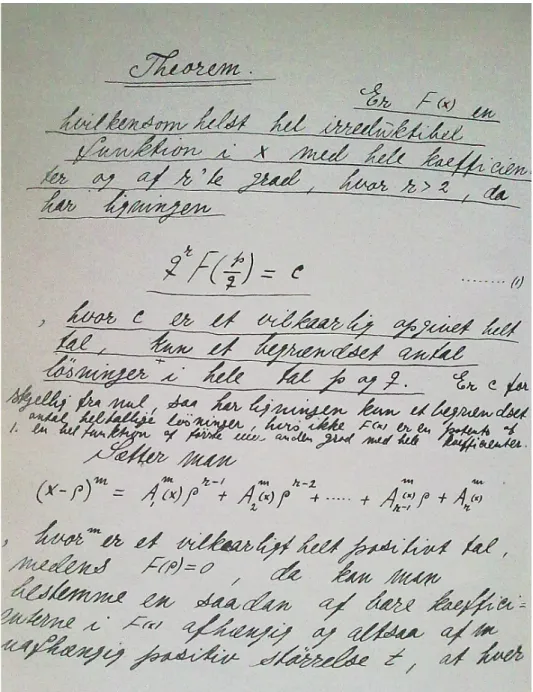 Theorem.
Er F(x) en
hvilkensomhelst hel irreduktibel
funktion i x med hele koefficien-
ter og af r'te grad, hvor r > 2, da
har ligningen
q^r F(p/q) = c ........ (1)
, hvor c er et vilkaarlig opgivet helt
tal, kun et begrændset antal
lösninger i hele tal p og q. Er c for
skjellig fra nul, saa har ligningen kun et begrændset
antal heltallige løsninger, hvis ikke F(x) er en potents af
1. en hel funktion af förste eller anden grad med hele koefficienter.
Sætter man
(x-ρ)^m = A_1^m(x) ρ^{r-1} + A_2^m(x) ρ^{r-2} + ..... + A_{r-1}^m(x) ρ + A_r^m(x)
, hvor m er et vilkaarligt helt positivt tal,
medens F(ρ)=0, da kan man
bestemme en saadan af bare koeffici=
enterne i F(x) afhængig og altsaa af m
uafhængig positiv störrelse t, at hver